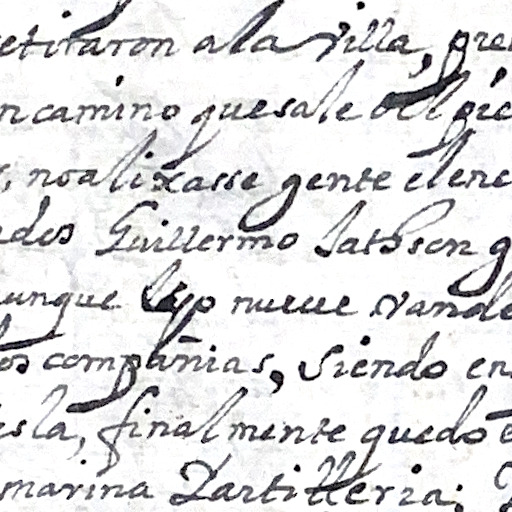 etiraron a la villa, pre
n camino que sale del pie
noalixasse gente el ene
dos Guillermo
unque nueve vande
os compañias, siendo en
isla, finalmente quedo e
marina Zartilleria;